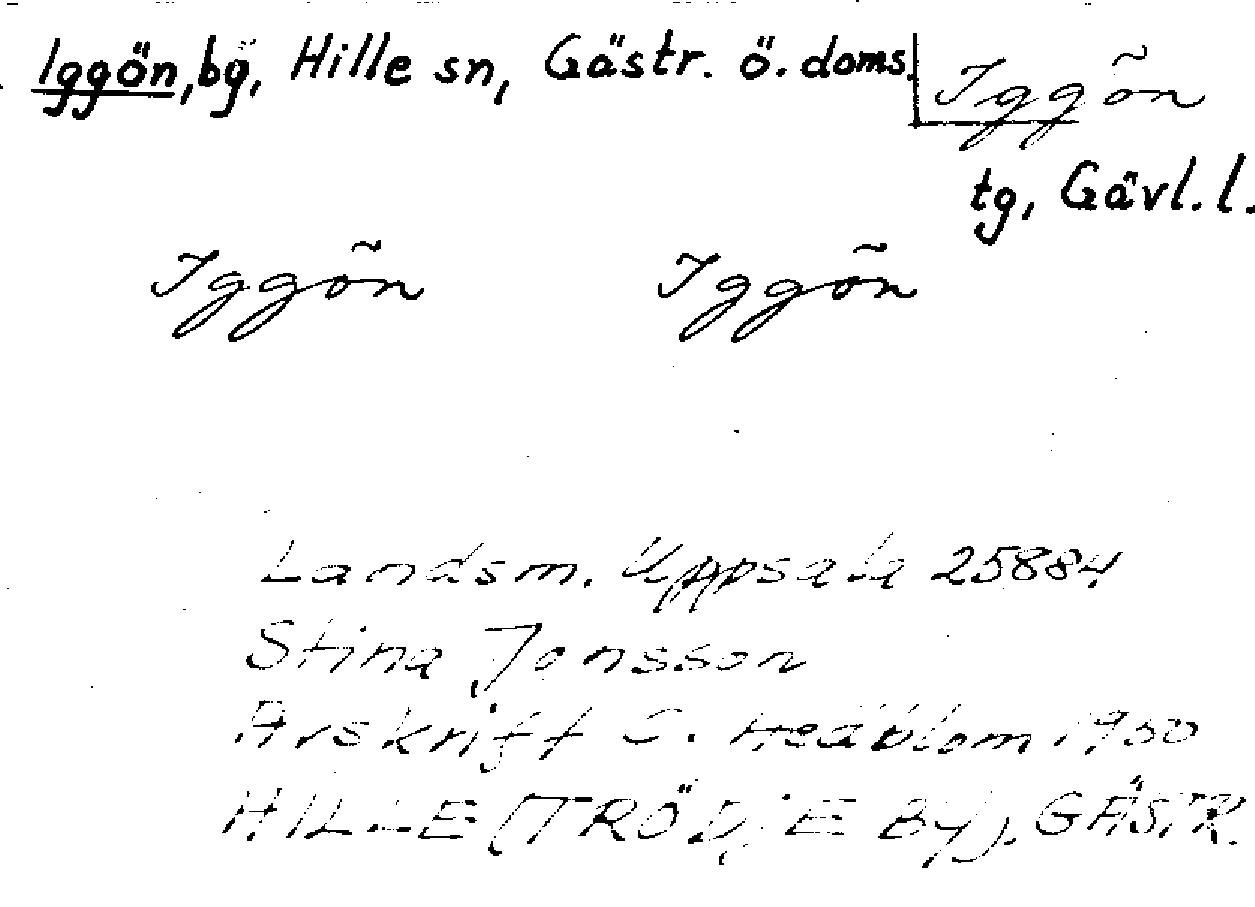 Iggön, bg, Hille sn, Gästr. ö. doms. Iggõn
tg, Gävl. l.
Iggõn Iggõn
Landsm. Uppsala 25884
Stina Jonsson
Avskrift C. Hedblom 1950
HILLE (TRÖDJE BY), GÄSTR.